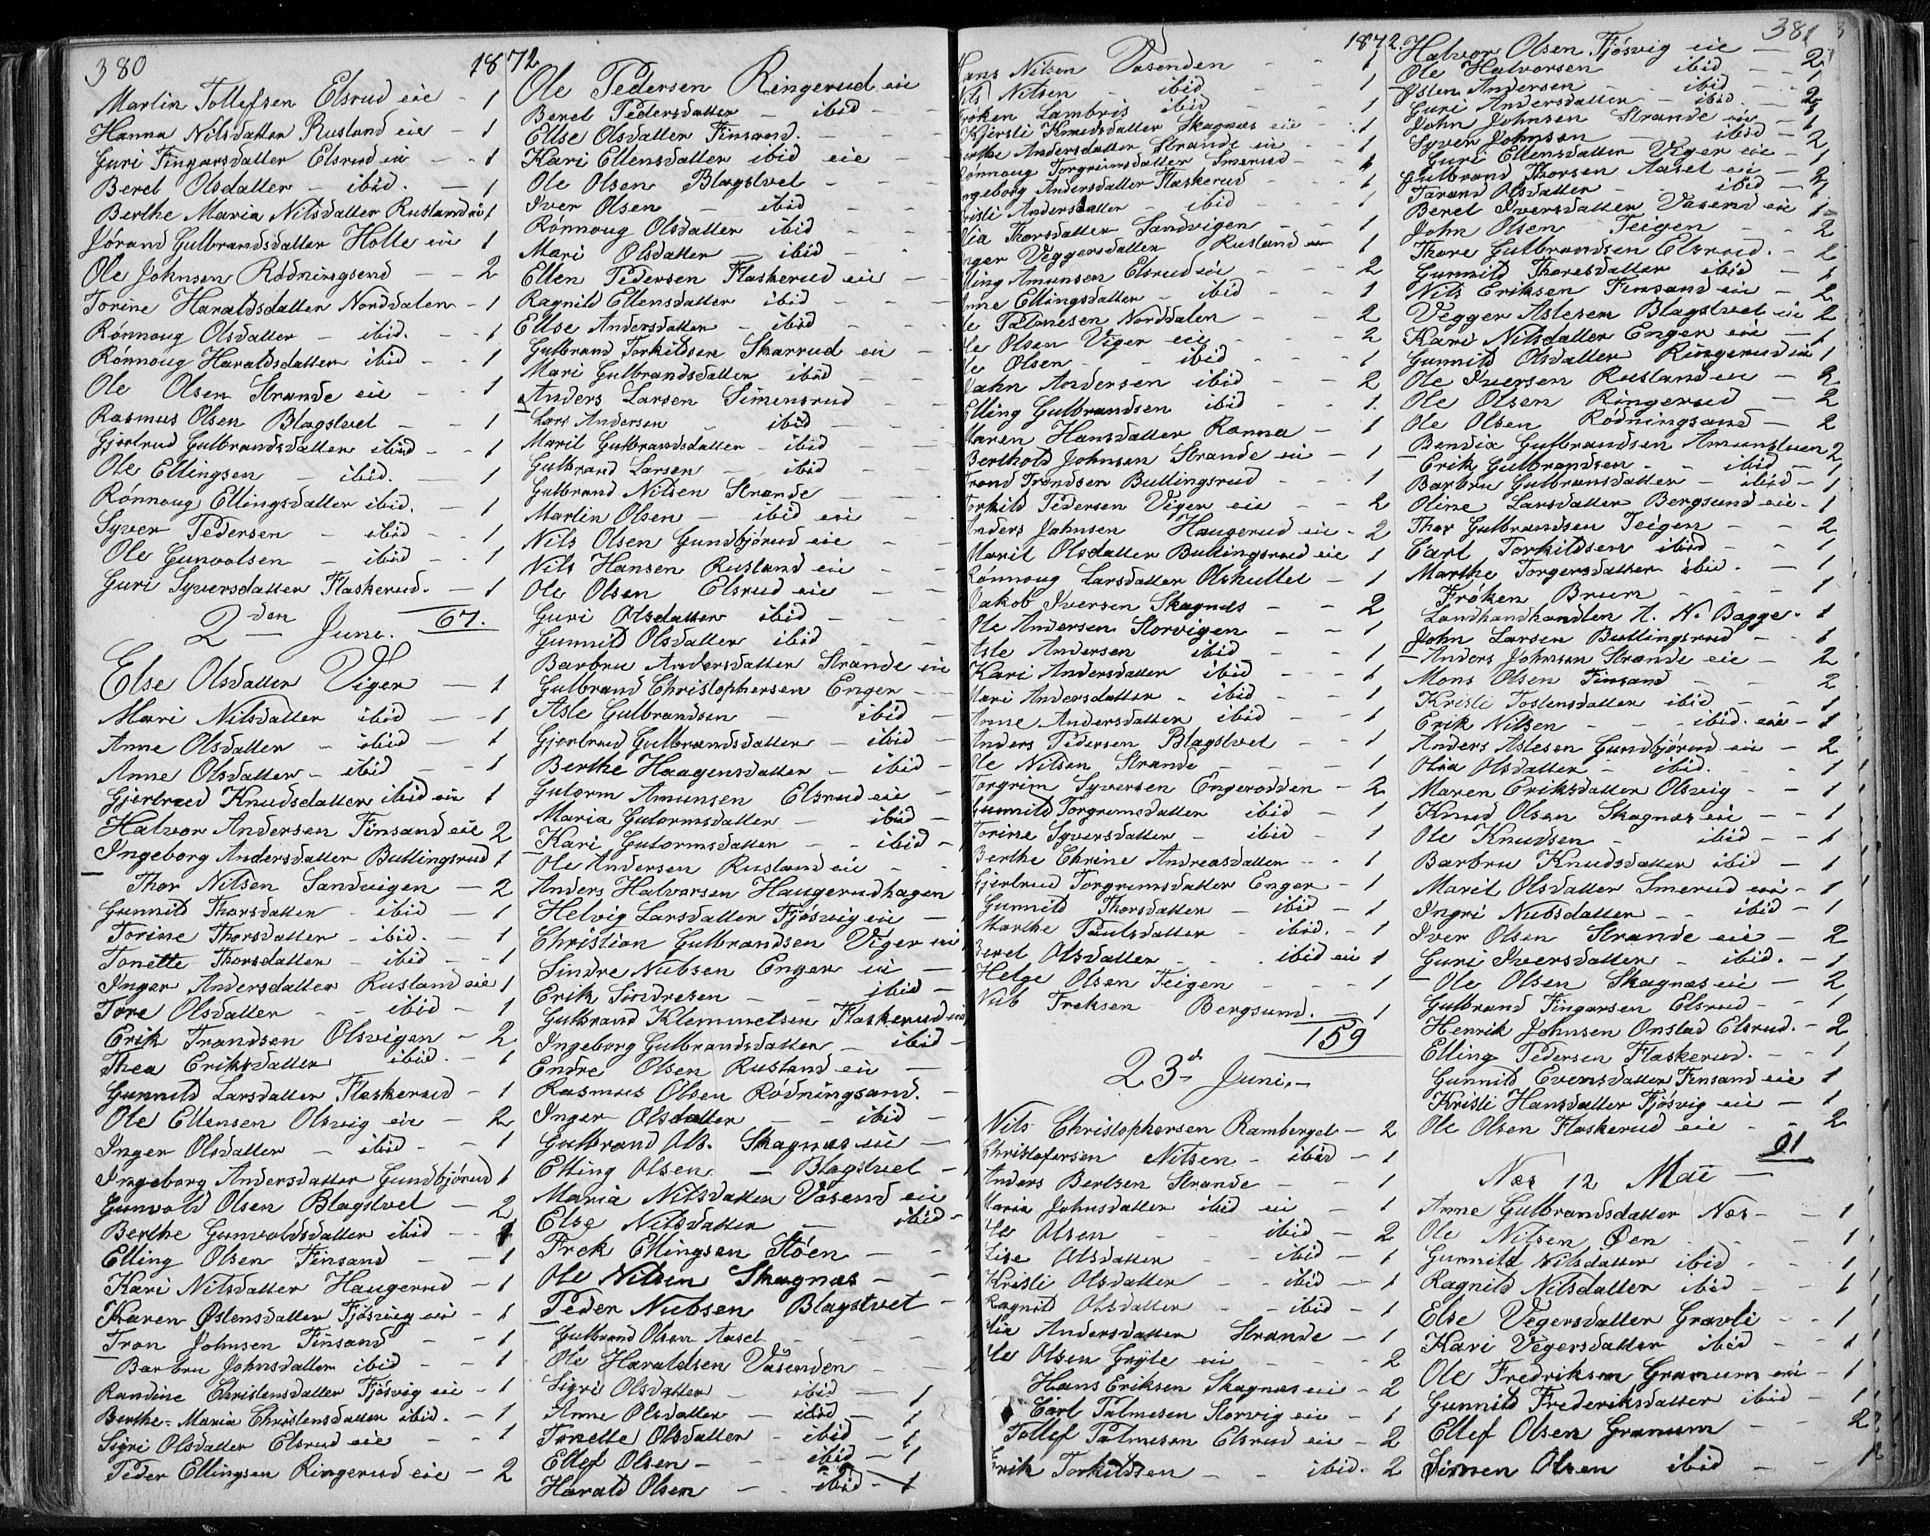 380
1872
Martin Tollefsen Elsrud eie - 1
Hanna Nilsdatter Rusland eie - 1
Guri Fingarsdatter Elsrud eie - - 1
Beret Olsdatter - ibid. - 1
Berthe Maria Nilsdatter Rusland eie 1
Jörand Gulbrandsdatter Holte eie 1
Ole Johnsen Rödningsend - - 2
Torine Haraldsdatter Norddalen - 1
Rönnoug Olsdatter - ibid. - 1
Rönnoug Haraldsdatter ibid - - 1
Ole Olsen Strande eie - - 1
Rasmus Olsen Blagstvet - - 1
Gjertrud Gulbrandsdatter ibid - - 1
Ole Ellingsen - ibid. - 1
Rönnoug Ellingsdatter ibid. - 1
Syver Pedersen - ibid - 1
Ole Gunvolsen - ibid - 1
Guri Syversdatter Flaskerud. - 1
67.
2den Juni.
Else Olsdatter Viger - 1
Mari Nilsdatter ibid - 1
Anne Olsdatter - ibid - 1
Anne Olsdatter - ibid - 1
Gjertrud Knudsdatter ibid eie 1
Halvor Andersen Finsand eie 2
Ingeborg Andersdatter Bullingsrud 1
Thor Nilsen Sandvigen - 2
Gunnild Thorsdatter - ibid - 1
Torine Thorsdatter - ibid. - 1
Tonette Thorsdatter - ibid - 1
Inger Andersdatter Rusland eie 1
Tore Olsdatter - - ibid - 1
Erik Trandsen Olsvigen - 2
Thea Eriksdatter ibid. - 1
Gunnild Larsdatter Flaskerud - 1
Ole Ellensen Olsvig eie - 2
Inger Olsdatter - ibid - 1
Ingeborg Andersdatter Gundbjörud 1
Gunvold Olsen Blagstvet - 2
Berthe Gunvoldsdatter ibid - - 1
Elling Olsen Finsand - - 1
Kari Nilsdatter Haugerud - 1
Karen Östensdatter Fjösvig eie - 1
Tron Johnsen Finsand - - 1
Barbru Johnsdatter ibid - - 1
Randine Christensdatter Fjösvig eie - 1
Berthe-Maria Christensdatter ibid. - 1
Sigri Olsdatter Elsrud eie - - 1
Peder Ellingsen Ringerud eie - 2
Ole Pedersen Ringerud eie
Beret Pedersdatter - ibid -
Ellse Olsdatter Finsand. - -
Kari Ellensdatter ibid eie - -
Ole Olsen Blagstvet - - -
Iver Olsen - ibid - -
Rönnoug Olsdatter ibid - -
Mari Olsdatter - ibid -
Ellen Pedersen Flaskerud eie -
Ragnild Ellensdatter ibid - -
Ellse Andersdatter - ibid - -
Gulbrand Torkildsen Skarrud eie
Mari Gulbrandsdatter ibid - -
Anders Larsen Simensrud - -
Lars Andersen - ibid -
Marit Gulbrandsdatter - ibid
Gulbrand Larsen - ibid -
Gulbrand Nilsen Strande - -
Martin Olsen - ibid eie
Nils Olsen Gundbjörud eie - -
Nils Hansen Rusland eie - -
Ole Olsen Elsrud eie - -
Guri Olsdatter ibid - - -
Gunnild Olsdatter ibid - -
Barbru Andersdatter Strande eie
Gulbrand Christophersen Enger - -
Asle Gulbrandsen - ibid -
Gjertrud Gulbrandsdatter - ibid -
Berthe Haagensdatter - ibid -
Gutorm Amunsen Elsrud eie -
Maria Gutormsdatter - ibid -
Kari Gutormsdatter - - ibid -
Ole Andersen Rusland eie - -
Anders Halvorsen Haugerudhagen
Helvig Larsdatter Fjösvig eie -
Christian Gulbrandsen Viger eie
Sindre Nubsen Enger eie -
Erik Sindresen - - ibid -
Gulbrand Klemmetsen Flaskerud eie
Ingeborg Gulbrandsdatter - ibid -
Endre Olsen Rusland eie -
Rasmus Olsen Rödningsand. -
Inger Olsdatter - - ibid -
Gulbrand Ols. Skagnæs eie -
Elling Olsen. - Blagstvet -
Maria Nilsdatter Vasend eie
Else Nilsdatter - ibid -
Frek Ellingsen Stöen - -
Ole Nilsen Skagnæs - -
Peder Nubsen Blagstvet -
Gulbrand Olsen Aasel - - -
Ole Haraldsen Vasenden -
Sigri Olsdatter - ibid - 1
Anne Olsdatter - ibid - 1
Tonette Olsdatter - ibid - 1
Ellef Olsen - - ibid - 1
Harald Olsen - - ibid - 1
381
1872.
Hans Nilsen Vasenden - - 1
Nils Nilsen - ibid - - 1
Fröken Lambris ibid - - 1
Kjersti Knudsdatter Skagnæs eie - 1
Berthe Andersdatter Strande eie - - 1
Rönnoug Torgrimsdatter Smerud - - 1
Ingeborg Andersdatter Flaskerud - - 1
Kristi Andersdatter - ibid - - 1
Olia Thorsdatter Sandvigen - - 1
Inger Veggersdatter Rusland eie 1
Elling Amunsen Elsrud eie - - 2
Anne Ellingsdatter - ibid - - 1
Ole Palmesen Norddalen - - 2
Ole Olsen Viger eie - - 2
Ole Olsen - - ibid - - 1
Vahn Andersen ibid - - 2
Elling Gulbrandsen ibid - - 1.
Maren Hansdatter Ranna - 1
Berthold Johnsen Strande eie - 1
Trond Trondsen Bullingsrud - - 1
Torkild Pedersen Viger eie - - 2
Anders Johnsen Haugerud eie - 2
Marit Olsdatter Bullingsrud eie 1
Rönnoug Larsdatter Olshuttet - 1
Jakob Iversen Skagnæs - - 2
Ole Andersen Storvigen - - 1
Asle Andersen ibid - - 1
Kari Andersdatter ibid - - 1
Mari Andersdatter - ibid - - 1
Anne Andersdatter - ibid - - 1
Anders Pedersen Blagstvet - - 1
Ole Nilsen Strande - - - 1
Torgrim Syversen Engerodden - 2
Gunnild Torgrimsdatter ibid - 1
Torine Syversdatter - ibid - 1
Berthe Chrine Andreasdatter - - 1
Gjertrud Torgrimsdatter Enger - 1
Gunnild Thorsdatter - ibid - 1
Marthe Paulsdatter - ibid. - 1
Beret Olsdatter - - ibid eie 1
Helge Olsen Teigen - - - 1
Nub Freksen Bergsund. - 1
159
23d Juni. -
Nils Christophersen Ramberget - 2
Christofersen Nilsen - ibid - 1
Anders Bertsen Strande - - 1
Maria Johnsdatter ibid eie - 1
Ole Olsen - - ibid - 2
Lise Olsdatter - ibid - 1
Kristi Olsdatter - - ibid - 1
Ragnild Olsdatter - - ibid - 1
Olia Andersdatter Strande - 1
Ole Olsen Gryte eie - - 2
Hans Eriksen Skagnæs eie - 2
Carl Palmesen Storvig eie - 1
Tollef Palmesen Elsrud eie - 2
Erik Torkildsen - - ibid. 2
Halvor Olsen Fjösvig eie - 2
Ole Halvorsen ibid - - 1
Östen Andersen - ibid - - 2
Guri Andersdatter - ibid - 1
John Johnsen Strande eie - 1
Syver Johnsen - ibid - 2
Guri Ellensdatter Viger eie - 1
Gulbrand Thorsen Aasel eie - 2
Tarand Olsdatter - - ibid - 1
Beret Iversdatter Vasend eie 1
John Olsen Teigen - - 2
Thore Gulbrandsen Elsrud. - 2
Gunnild Thoresdatter ibid - 1
Nils Eriksen Finsand eie - 2
Vegger Aslesen Blagstvet eie 2
Kari Nilsdatter Enger eie - 1
Gunnild Olsdatter Ringerud eie 1
Ole Iversen Rusland eie - 2
Ole Olsen Ringerud - 2
Ole Olsen Rödningsand - 2
Bendia Gulbrandsen Amunstuen 2
Erik Gulbrandsen - - ibid - 1
Barbru Gulbransdatter - ibid - 1
Oline Larsdatter Bergsund eie - 1
Thor Gulbrandsen Teigen - - 2
Carl Torkildsen ibid - - 1
Marthe Torgersdatter ibid. - 1
Fröken Brun - - - 1
Landhandhandlen A. N. Bagge. 1
John Larsen Bullingsrud - - 1
Anders Johnsen Strande eie - 2
Mons Olsen Finsand - - 2
Kristi Tostensdatter ibid - - 1
Erik Nilsen - - - ibid. eie - 1
Anders Aslesen Gundbjörud eie - 2
Olia Olsdatter - ibid. - - 1
Maren Eriksdatter Olsvig - - 1
Knud Olsen Skagnæs eie - - 1
Ole Knudsen - - ibid - 1
Barbru Knudsdatter ibid - 1
Marit Olsdatter Smerud eie - 1
Ingri Nubsdatter - - ibid - 1
Iver Olsen Strande eie - 2
Guri Iversdatter - ibid. - 1
Ole Olsen Skagnæs eie - 2
Gulbrand Fingarsen Elsrud - - 1
Henrik Johnsen Onstad Elsrud. - 2
Elling Pedersen Flaskerud. - - 1
Gunnild Evensdatter Finsand eie 1
Kristi Hansdatter Fjösvig eie - 1
Ole Olsen Flaskerud eie - - 2
91
Næs 12 Mai -
Anne Gulbrandsdatter Næs - - 1
Ole Nilsen Öen - - - 1
Gunnild Nilsdatter ibid - - 1
Ragnild Nilsdatter ibid - 1
Else Vegersdatter Gravli - - 1
Kari Vegersdatter ibid - 1
Ole Fredriksen Granum eie - 1
Gunnild Frederiksdatter ibid 1
Ellef Olsen Granum - 2
Simen Olsen ibid - - 1